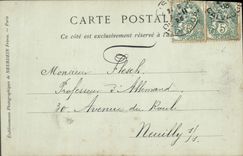 CARTE POSTALE
Ce côté est exclusivement réservé à l'a
Etablissements Photographiques de NEURDEIN Frères. — Paris
5
Monsieur Flesch
Professeur d'Allemand
30 Avenue du Roule
Neuilly s/s.